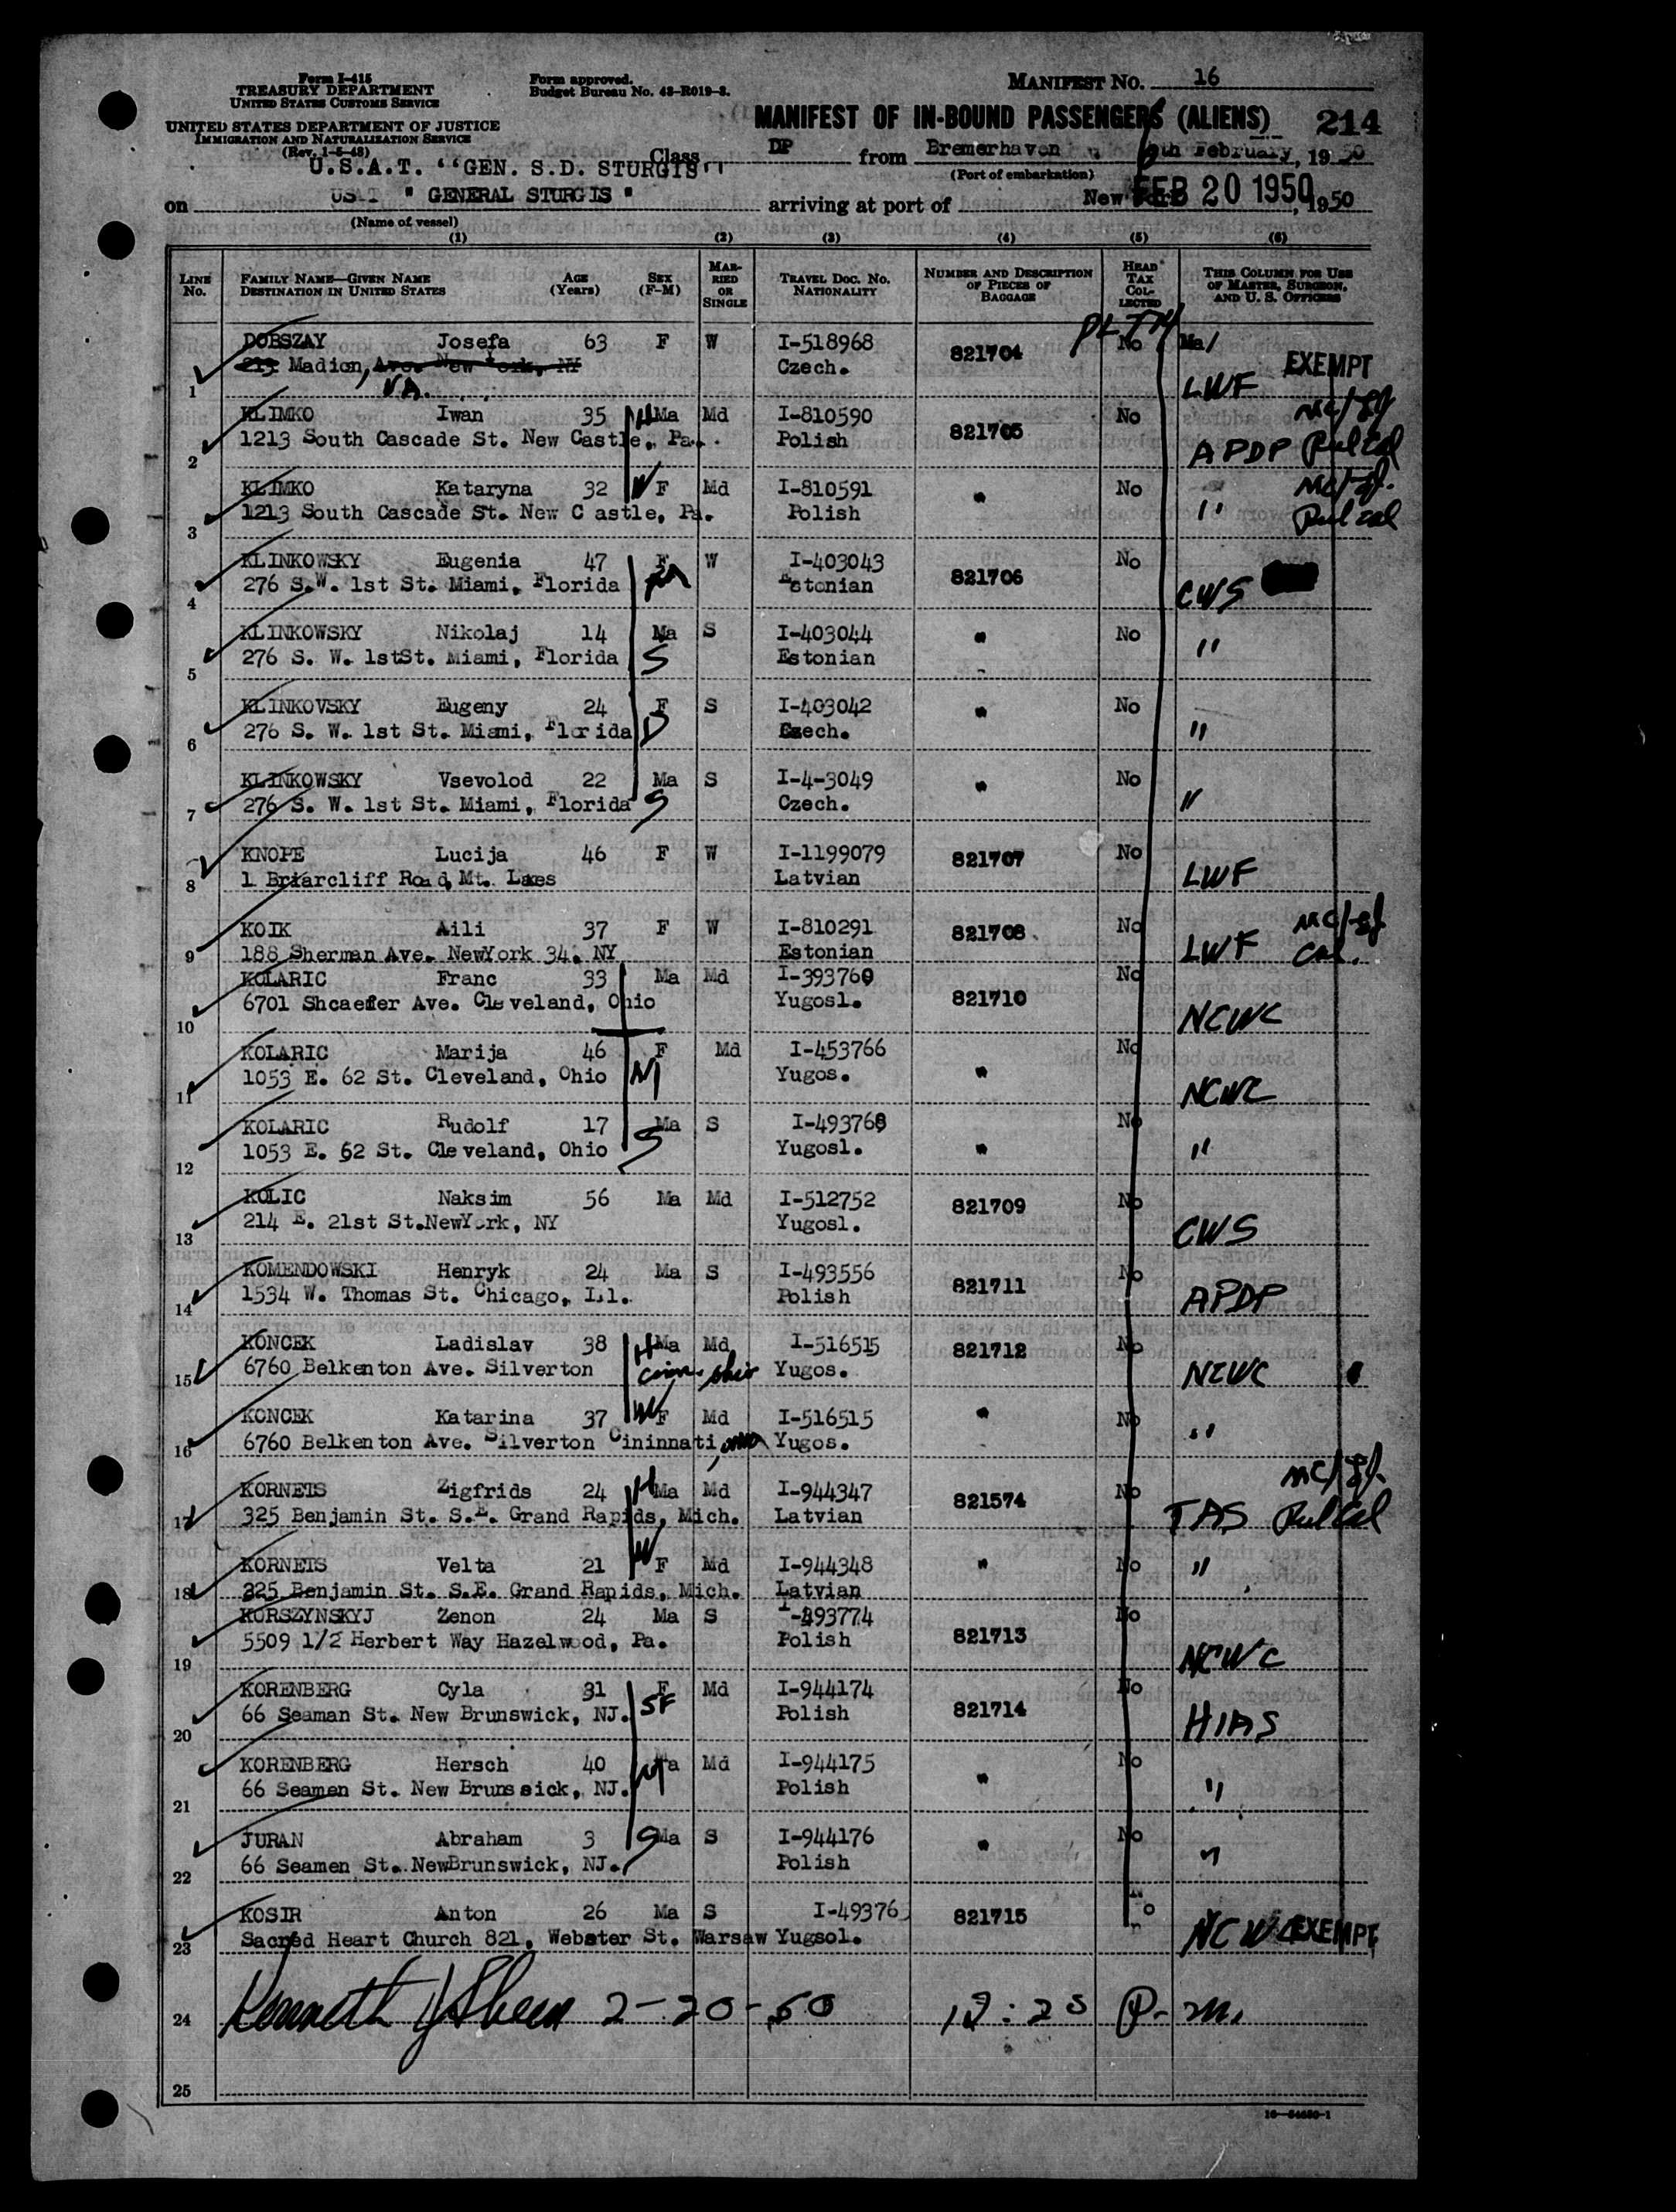 Form I-415
TREASURY DEPARTMENT
UNITED STATES CUSTOMS SERVICE
Form approved.
Budget Bureau No. 43-R019-3.
MANIFEST NO. 16
UNITED STATES DEPARTMENT OF JUSTICE
IMMIGRATION AND NATURALIZATION SERVICE
(Rev. 1-5-48)
MANIFEST OF IN-BOUND PASSENGERS (ALIENS) 214
U.S.A.T. "GEN. S.D. STURGIS"
Class DP from Bremerhaven, 6th February, 1950
(Port of embarkation)
on USAT "GENERAL STURGIS" arriving at port of New FEB 20 1950, 1950
(Name of vessel)
(1) (2) (3) (4) (5) (6)
LINE NO. FAMILY NAME—GIVEN NAME DESTINATION IN UNITED STATES AGE (Years) SEX (F-M) MARRIED OR SINGLE TRAVEL DOC. NO. NATIONALITY NUMBER AND DESCRIPTION OF PIECES OF BAGGAGE HEAD TAX COLLECTED THIS COLUMN FOR USE OF MASTER, SURGEON, AND U. S. OFFICERS
DOBSZAY Josefa 63 F W I-518968 821704 No Ma/ EXEMPT
1 213 Madion, Ave. New York, NY VA. Czech. LWF
KLIMKO Iwan 35 H Ma Md I-810590 821705 No
2 1213 South Cascade St. New Castle, Pa. Polish APDP
KLIMKO Kataryna 32 W F Md I-810591 " No
3 1213 South Cascade St. New C astle, Pa. Polish "
KLINKOWSKY Eugenia 47 F W I-403043 821706 No
4 276 S.W. 1st St. Miami, Florida M Estonian CWS
KLINKOWSKY Nikolaj 14 Ma S I-403044 " No
5 276 S. W. 1stSt. Miami, Florida S Estonian "
KLINKOVSKY Eugeny 24 F S I-403042 " No
6 276 S. W. 1st St. Miami, Florida D Czech. "
KLINKOWSKY Vsevolod 22 Ma S I-4-3049 " No
7 276 S. W. 1st St. Miami, Florida S Czech. "
KNOPE Lucija 46 F W I-1199079 821707 No
8 1 Briarcliff Road, Mt. Lakes Latvian LWF
KOIK Aili 37 F W I-810291 821708 No
9 188 Sherman Ave. NewYork 34. NY Estonian LWF
KOLARIC Franc 33 Ma Md I-393760 821710 No
10 6701 Shcaefer Ave. Cleveland, Ohio Yugosl. NCWC
KOLARIC Marija 46 F Md I-453766 " No
11 1053 E. 62 St. Cleveland, Ohio M Yugos. NCWC
KOLARIC Rudolf 17 Ma S I-493768 " No
12 1053 E. 62 St. Cleveland, Ohio S Yugosl. "
KOLIC Naksim 56 Ma Md I-512752 821709 No
13 214 E. 21st St.NewYork, NY Yugosl. CWS
KOMENDOWSKI Henryk 24 Ma S I-493556 821711 No
14 1534 W. Thomas St. Chicago, Ill. Polish APDP
KONCEK Ladislav 38 H Ma Md I-516515 821712 No
15 6760 Belkenton Ave. Silverton Cinn. Ohio Yugos. NCWC
KONCEK Katarina 37 W F Md I-516515 " No
16 6760 Belkenton Ave. Silverton Cininnati, Yugos. "
KORNETS Zigfrids 24 H Ma Md I-944347 821574 No
17 325 Benjamin St. S.E. Grand Rapids, Mich. Latvian
KORNETS Velta 21 W F Md I-944348 " No "
18 325 Benjamin St. S.E. Grand Rapids, Mich. Latvian
KORSZYNSKYJ Zenon 24 Ma S 821713 No
19 5509 1/2 Herbert Way Hazelwood, Pa. Polish NCWC
KORENBERG Cyla 31 F Md I-944174 821714 No
20 66 Seaman St. New Brunswick, NJ. SF Polish HIAS
KORENBERG Hersch 40 Ma Md I-944175 " No
21 66 Seamen St. New Brunssick, NJ. Polish "
JURAN Abraham 3 S Ma S I-944176 " No
22 66 Seamen St. NewBrunswick, NJ. Polish "
KOSIR Anton 26 Ma S I-49376 821715 No
23 Sacred Heart Church 821, Webster St. Warsaw Yugsol. NCWC EXEMPT
24 Kenneth 2-20-50 P.m.
25